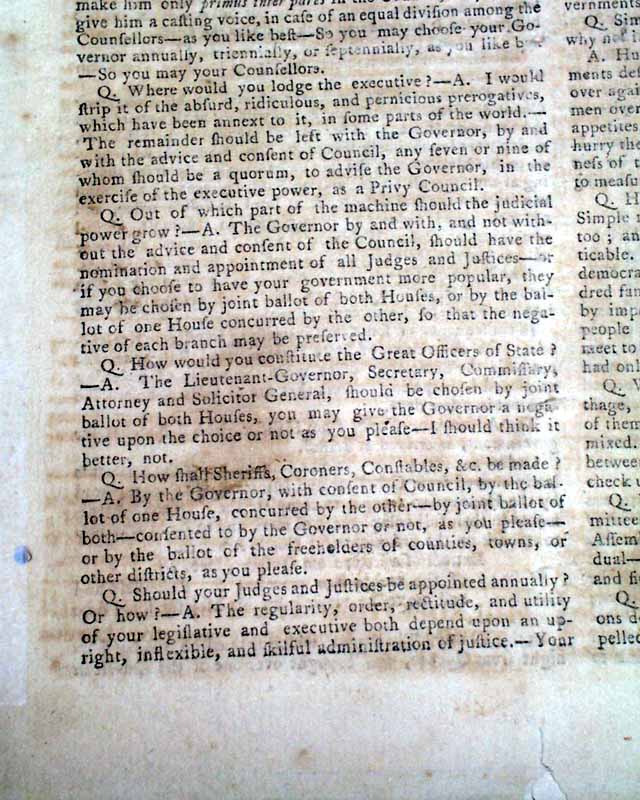 make him only primus inter pares in the
give him a caſting voice, in caſe of an equal diviſion among the
Counſellors—as you like beſt—So you may chooſe your Go-
vernor annually, triennially, or ſeptennially, as you like
—So you may your Counſellors.
Q. Where would you lodge the executive?—A. I would
ſtrip it of the abſurd, ridiculous, and pernicious prerogatives,
which have been annext to it, in ſome parts of the world.—
The remainder ſhould be left with the Governor, by and
with the advice and conſent of Council, any ſeven or nine of
whom ſhould be a quorum, to adviſe the Governor, in the
exerciſe of the executive power, as a Privy Council.
Q. Out of which part of the machine ſhould the judicial
power grow?—A. The Governor by and with, and not with-
out the advice and conſent of the Council, ſhould have the
nomination and appointment of all Judges and Juſtices—or
if you chooſe to have your government more popular, they
may be choſen by joint ballot of both Houſes, or by the bal-
lot of one Houſe concurred by the other, ſo that the nega-
tive of each branch may be preſerved.
Q. How would you conſtitute the Great Officers of State?
—A. The Lieutenant-Governor, Secretary, Commiſſary,
Attorney and Solicitor General, ſhould be choſen by joint
ballot of both Houſes, you may give the Governor a nega-
tive upon the choice or not as you pleaſe—I ſhould think it
better, not.
Q. How ſhall Sheriffs, Coroners, Conſtables, &c. be made?
—A. By the Governor, with conſent of Council, by the bal-
lot of one Houſe, concurred by the other—by joint ballot of
both—conſented to by the Governor or not, as you pleaſe—
or by the ballot of the freeholders of counties, towns, or
other diſtricts, as you pleaſe.
Q. Should your Judges and Juſtices be appointed annually?
Or how?—A. The regularity, order, rectitude, and utility
of your legiſlative and executive both depend upon an up-
right, inflexible, and ſkilful adminiſtration of juſtice.—Your
vernments
Q.
why not
A.
ments
over
men over
appetites
hurry the
neſs of
to meaſu
Q. H
Simple
too; an
ticable.
democra
dred fan
by imp
people
meet to
had onl
Q.
thage,
of them
mixed.
between
check u
Q.
mittee
Aſſem
dual—
and ſi
Q.
ons d
pelled